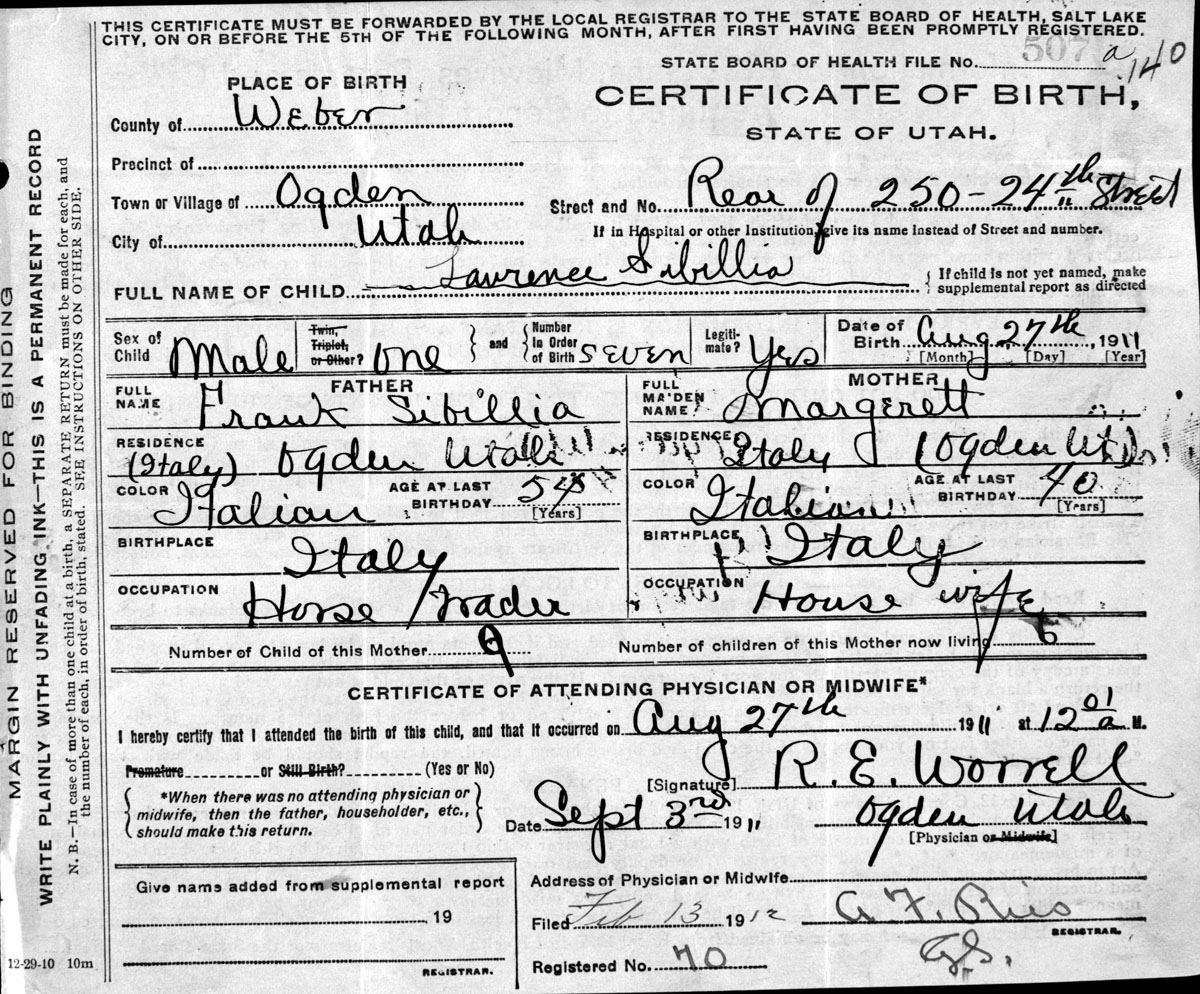 THIS CERTIFICATE MUST BE FORWARDED BY THE LOCAL REGISTRAR TO THE STATE BOARD OF HEALTH, SALT LAKE
CITY, ON OR BEFORE THE 5TH OF THE FOLLOWING MONTH, AFTER FIRST HAVING BEEN PROMPTLY REGISTERED.
507
STATE BOARD OF HEALTH FILE No. a 140
PLACE OF BIRTH
CERTIFICATE OF BIRTH,
STATE OF UTAH.
County of Weber
Precinct of
Town or Village of Ogden
Street and No. Rear of 250-24th Street
City of Utah
If in Hospital or other Institution, give its name instead of Street and number.
FULL NAME OF CHILD Lawrence Sibillia
{ If child is not yet named, make
supplemental report as directed
Sex of Child Male
Twin, Triplet, or Other? one
and
Number in Order of Birth seven
Legiti-mate? Yes
Date of Birth Aug 27th, 1911
[Month] [Day] [Year]
FATHER
FULL NAME Frank Sibillia
MOTHER
FULL MAIDEN NAME Margerett
RESIDENCE (Italy) Ogden Utah
RESIDENCE Italy (Ogden Ut)
COLOR Italian
AGE AT LAST BIRTHDAY 54 [Years]
COLOR Italian
AGE AT LAST BIRTHDAY 40 [Years]
BIRTHPLACE Italy
BIRTHPLACE Italy
OCCUPATION Horse Trader
OCCUPATION House wife
Number of Child of this Mother 9
Number of children of this Mother now living 6
CERTIFICATE OF ATTENDING PHYSICIAN OR MIDWIFE*
I hereby certify that I attended the birth of this child, and that it occurred on Aug 27th 1911 at 12 01 a M.
Premature or Still Birth? (Yes or No)
[Signature] R. E. Worrell
{ *When there was no attending physician or
midwife, then the father, householder, etc.,
should make this return. }
Date Sept 3rd 1911
Ogden Utah
[Physician or Midwife]
Give name added from supplemental report
19
REGISTRAR.
Address of Physician or Midwife
Filed Feb 13 1912
REGISTRAR.
Registered No. 70
12-29-10 10m
MARGIN RESERVED FOR BINDING
WRITE PLAINLY WITH UNFADING INK—THIS IS A PERMANENT RECORD
N. B.—In case of more than one child at a birth, a SEPARATE RETURN must be made for each, and
the number of each, in order of birth, stated. SEE INSTRUCTIONS ON OTHER SIDE.